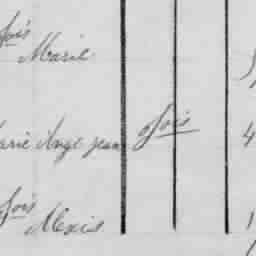 fois
Marie
Marie Ange jean fois 4
fois
Alexis 1